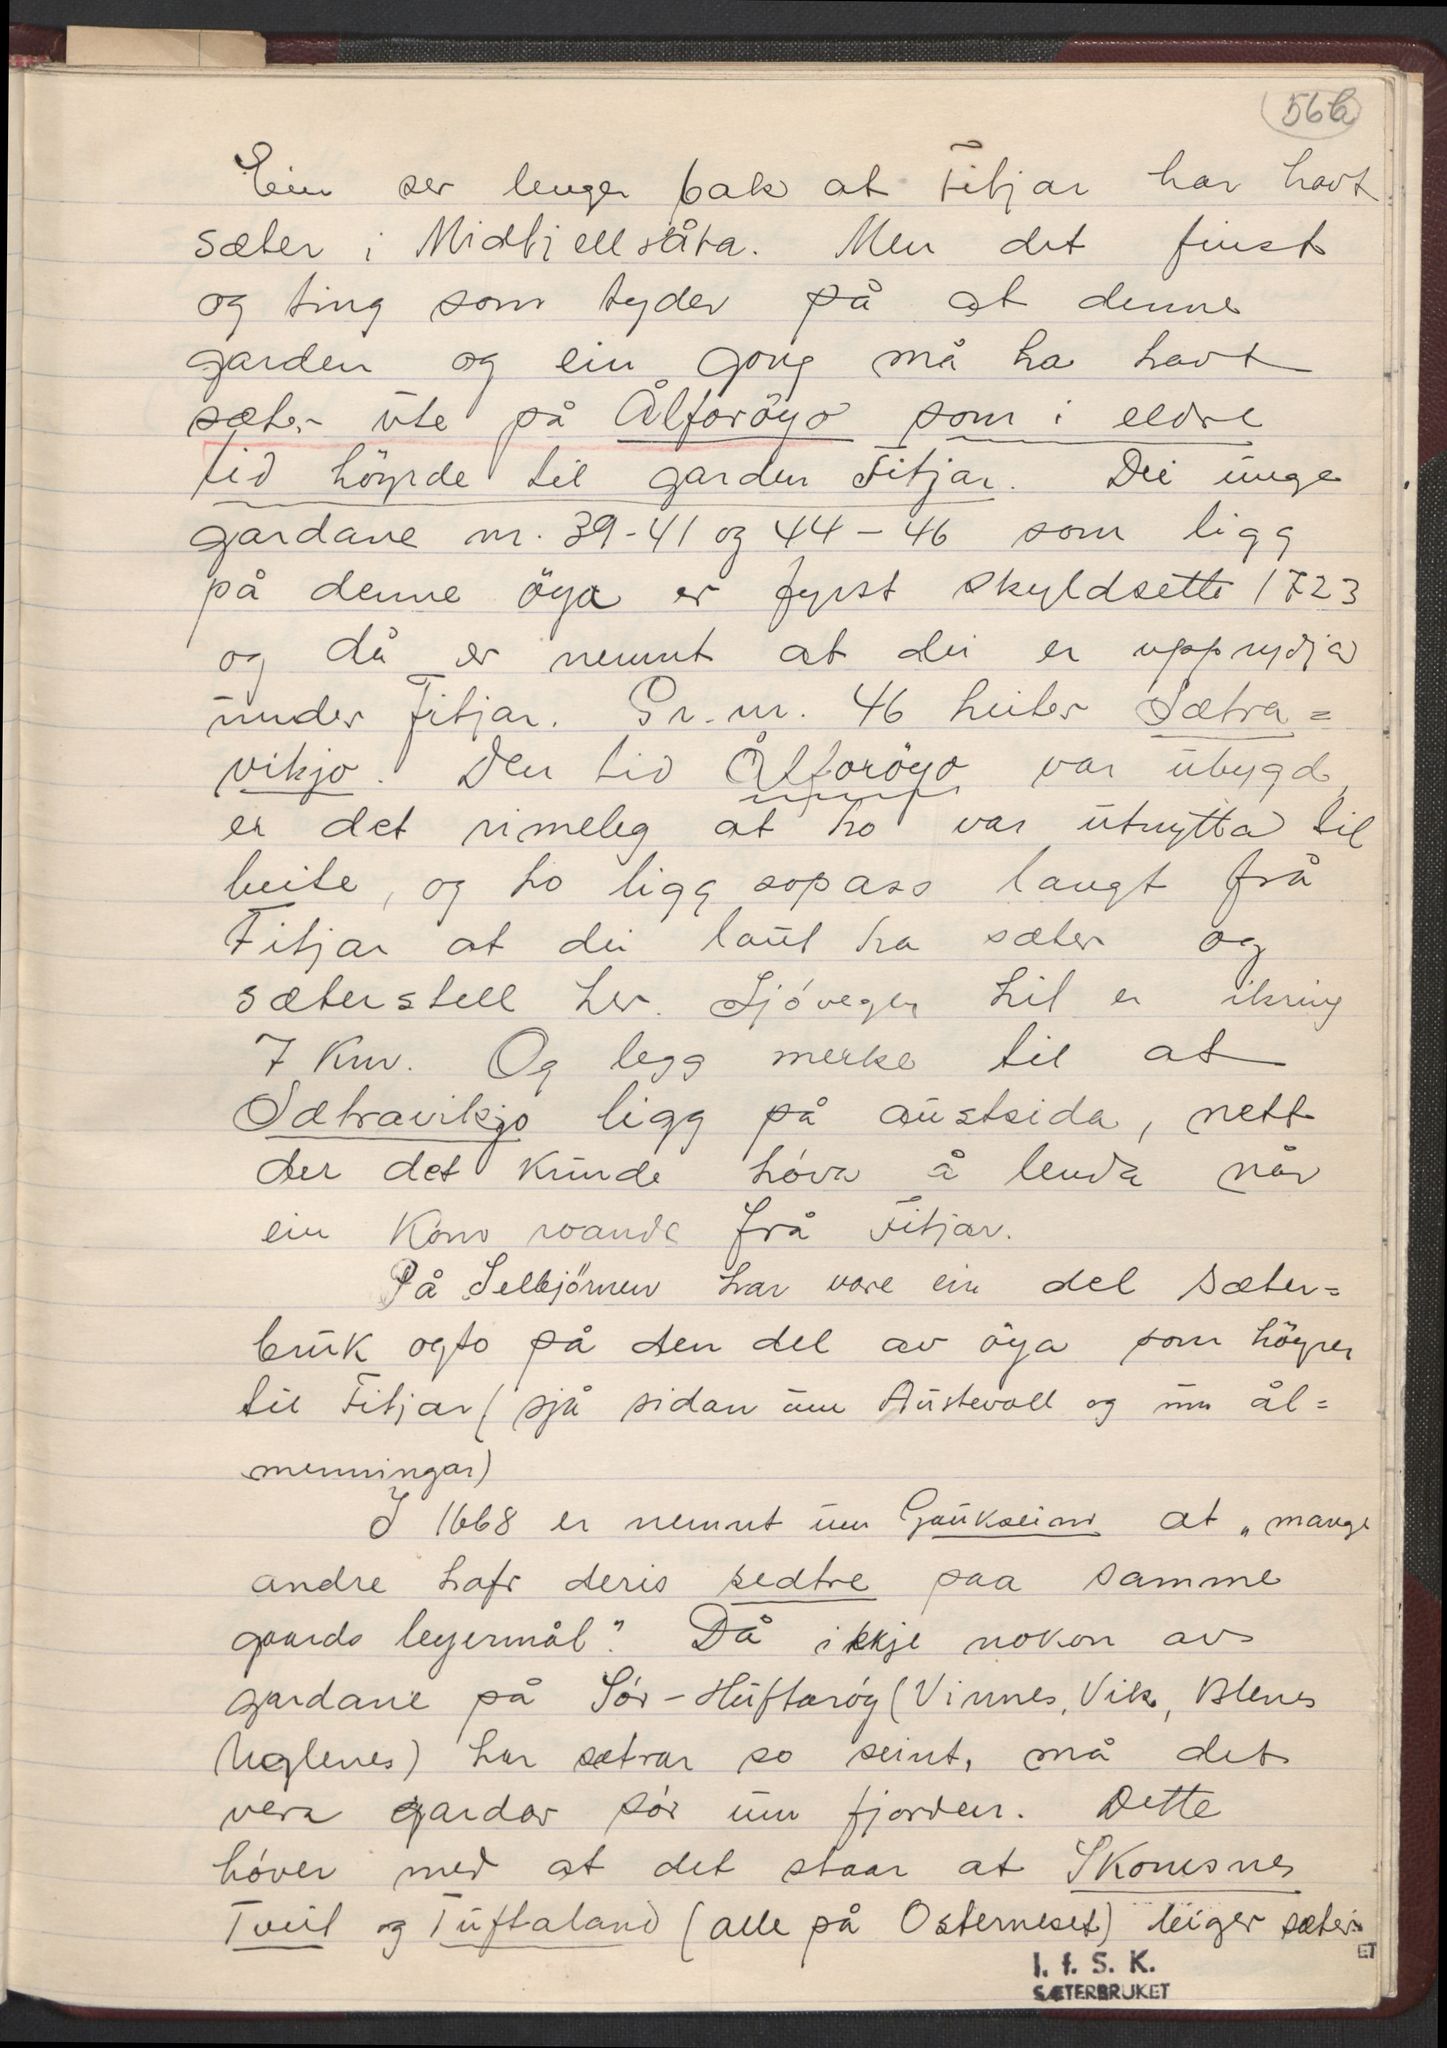 56b
Ein ser lenger bak at Fitjar har havt
sæter i Midtfjellslåta. Men det finst
og ting som tyder på at denne
garden og ein gong må ha havt
sæter ute på Ålforöyo som i eldre
tid höyrde til garden Fitjar. Dei unge
gardane nr. 39-41 og 44-46 som ligg
på denne öya er fyrst skyldsette 1723
og då er nemnt at dei er upprydja
under Fitjar. Gr.nr. 46 heiter Sætra=
vikjo. Den tid Ålforöyo var ubygd,
er det rimeleg at ho var utnytta til
beite, og ho ligg sopass langt frå
Fitjar at dei laut ha sæter og
sæterstell her. Sjóvegen hit er ikring
7 Km. Og legg merke til at
Sætravikjo ligg på austsida, nett
der det kunde hóva å lenda når
ein kom roande frå Fitjar.
På Selbjörnen har vore ein del sæter=
bruk ogso på den del av öya som höyrer
til Fitjar (sjå sidan um Austevoll og um ål=
menningar)
I 1668 er nemnt um Gaukseim at „mange
andre hafr deris sedtre paa samme
gaards leyermål". Då ikkje nokon av
gardane på Sór-Huftaröy (Vinnes, Vik, Blenes
Uglenes) har sætrar so seint, må det
vera gardar sór um fjorden. Dette
hóver med at det staar at Skonesnes
Tveit og Tuftaland (alle på Osterneset) leiger sæter
ET
I. f. S. K.
SÆTERBRUKET